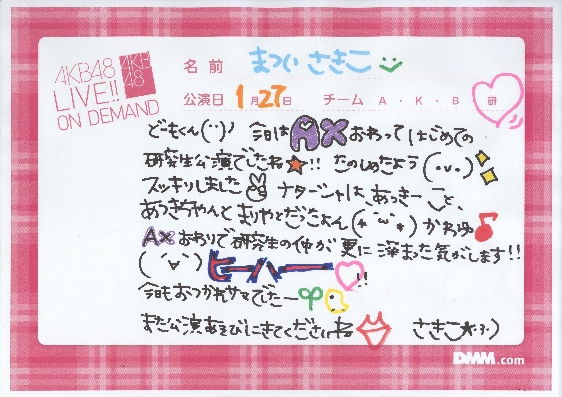 AKB48
LIVE!!
ON DEMAND
AKB
48
名前 まつい さきこ
公演日 1月27日 チーム A・K・B 研
どーもくん(··)ノ 今日はAXおわってはじめての
研究生公演でしたね★!! たのしめたよう(ﾟvﾟ)
スッキリしました ナターシャは、あっきーこと、
あきちゃんと まりやとだったよん(*´ω`*) かわゆ♪
AXおわりで研究生の仲が更に深まった気がします!!
(´∀`) ヒーハー♡!!
今日もおつかれサマでしたー
また公演あそびにきてくださいね さきこ
DMM.com